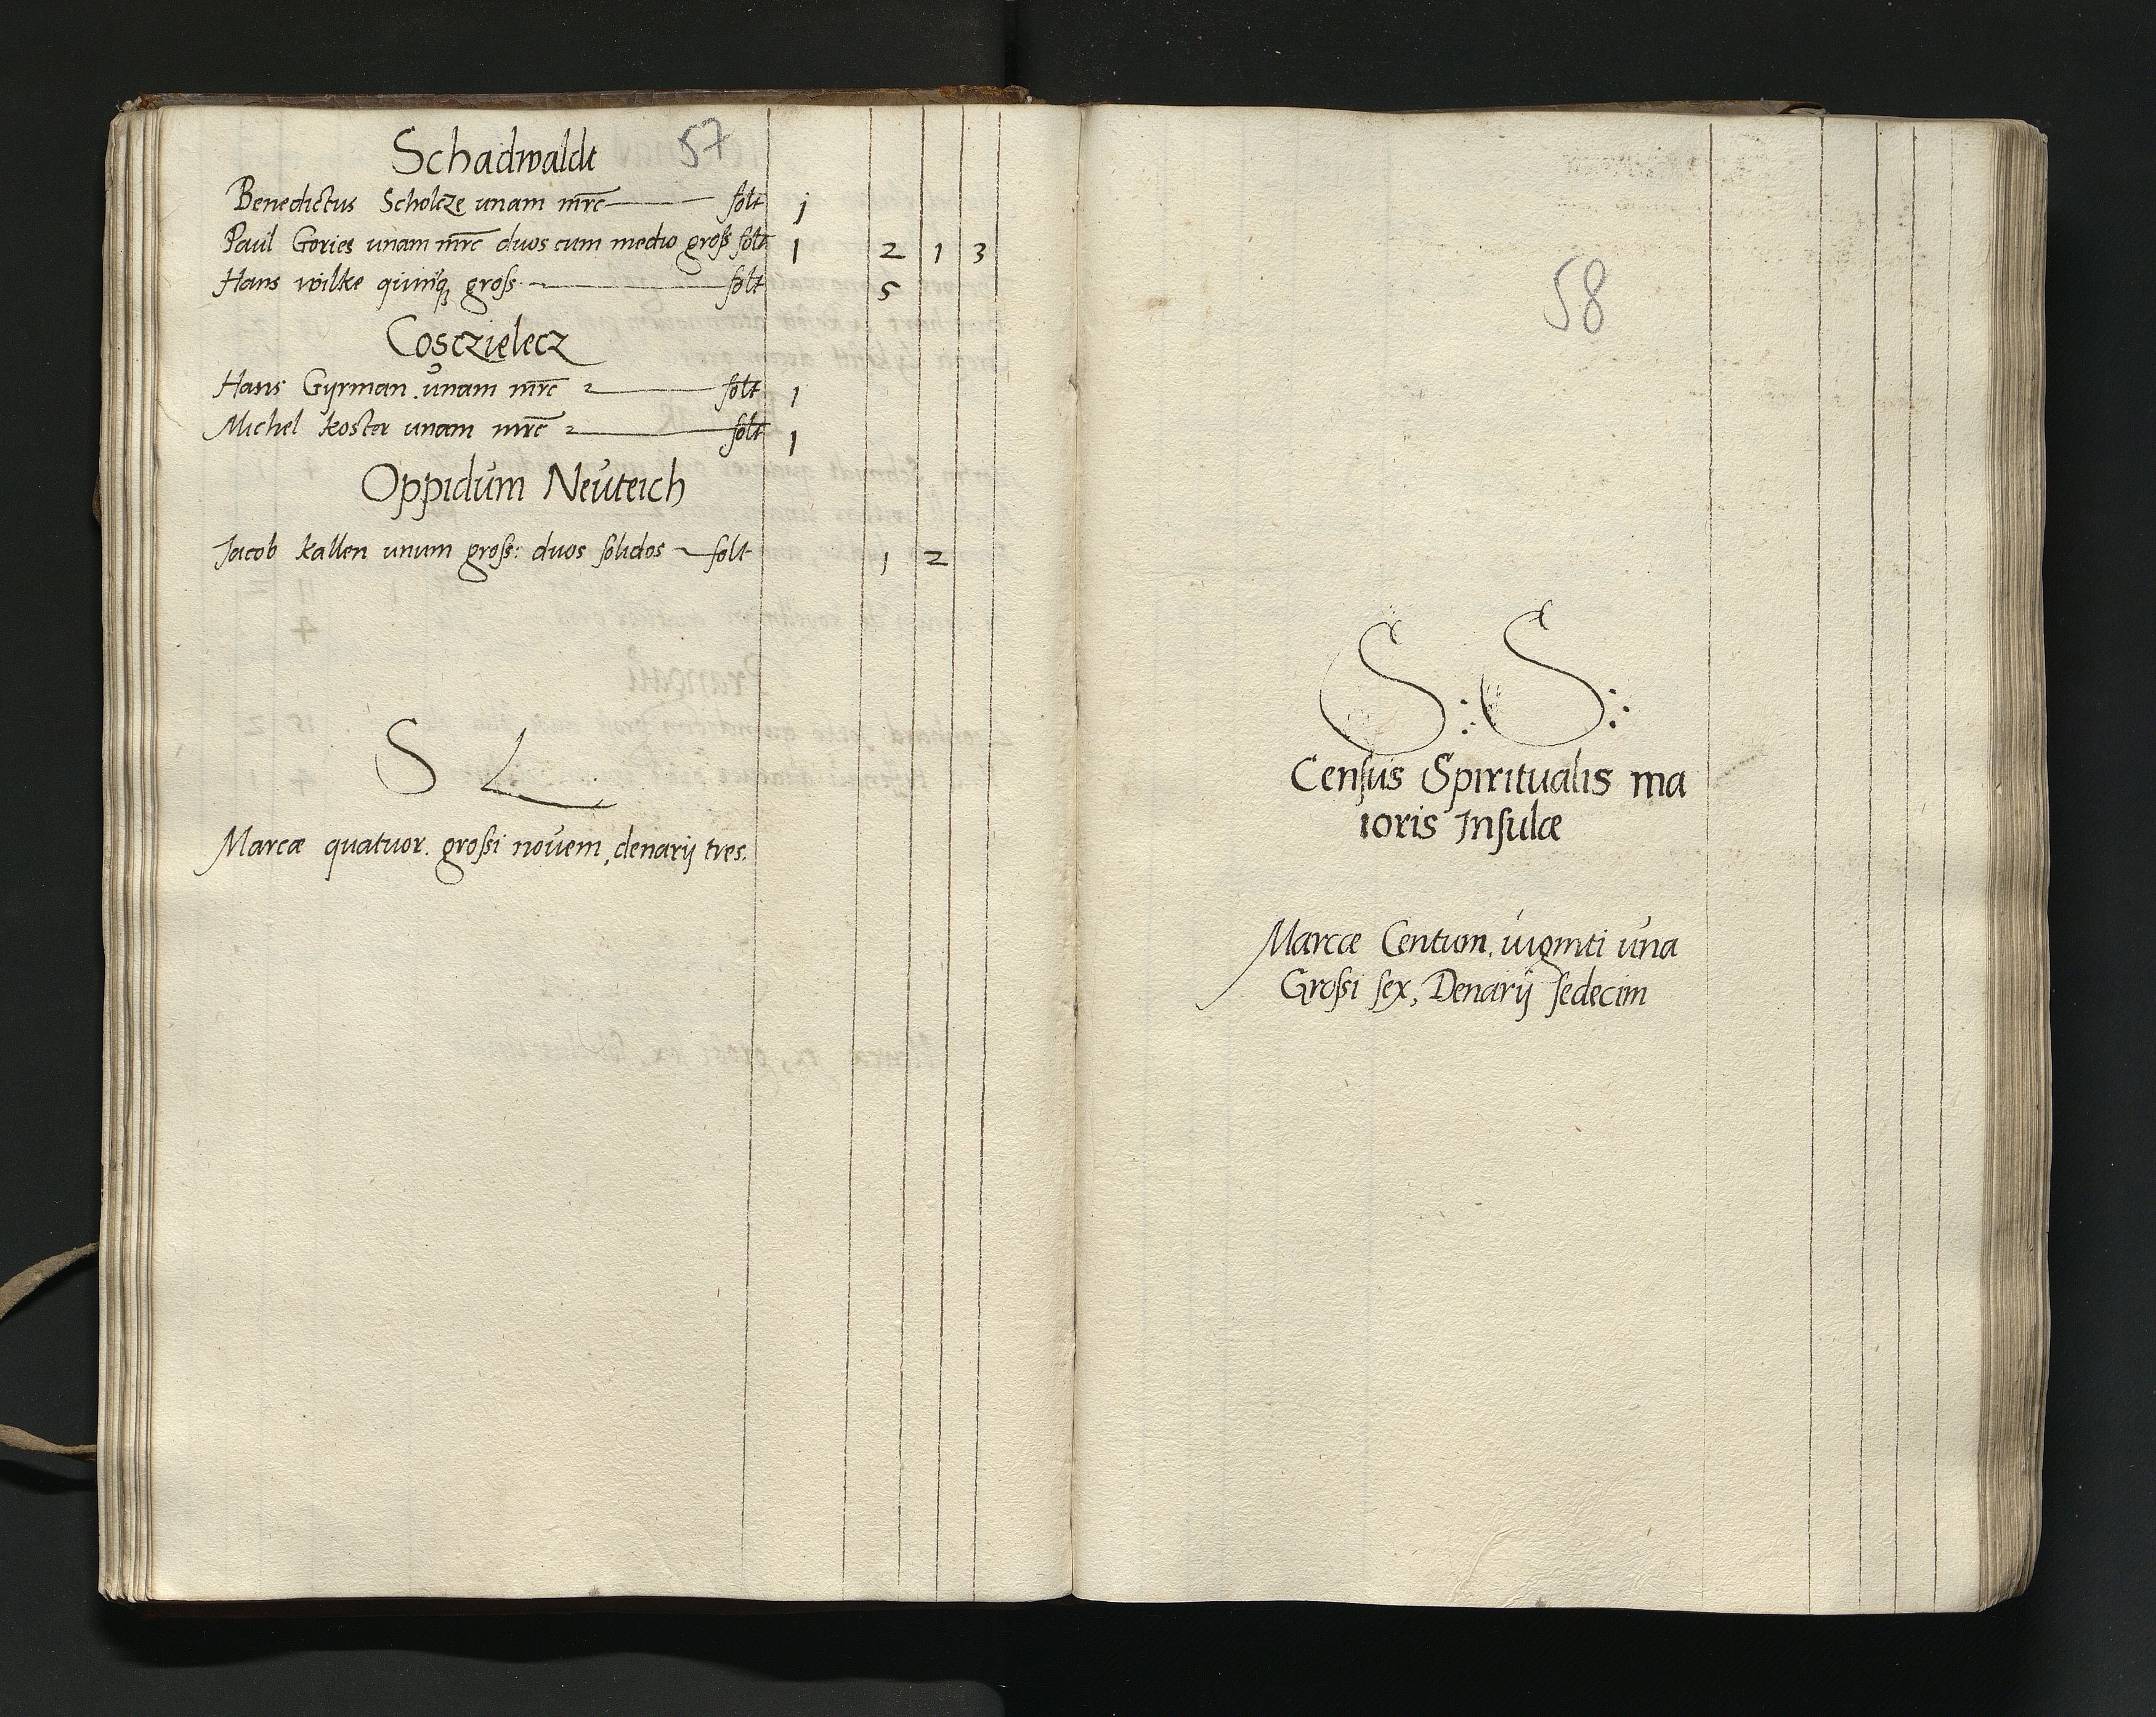 Schadwaldt 57
Benedictus Scholcze unam mrc solt 1
Paul Gories unam mrc duos cum medio gross solt 1 2 1 3
Hans wilke quinq gross solt 5
Cosczielecz
Hans Gyrman unam mrc solt 1
Michel koster unam mrc solt 1
Oppidum Neuteich
Jacob kallen unum gross: duos solidos solt 1 2
S L
Marcæ quatuor. grossi novem, denarij tres.
58
S: S:
Census Spiritualis ma
ioris Insulæ
Marcæ Centum. viginti una
Grossi sex, Denarij sedecim